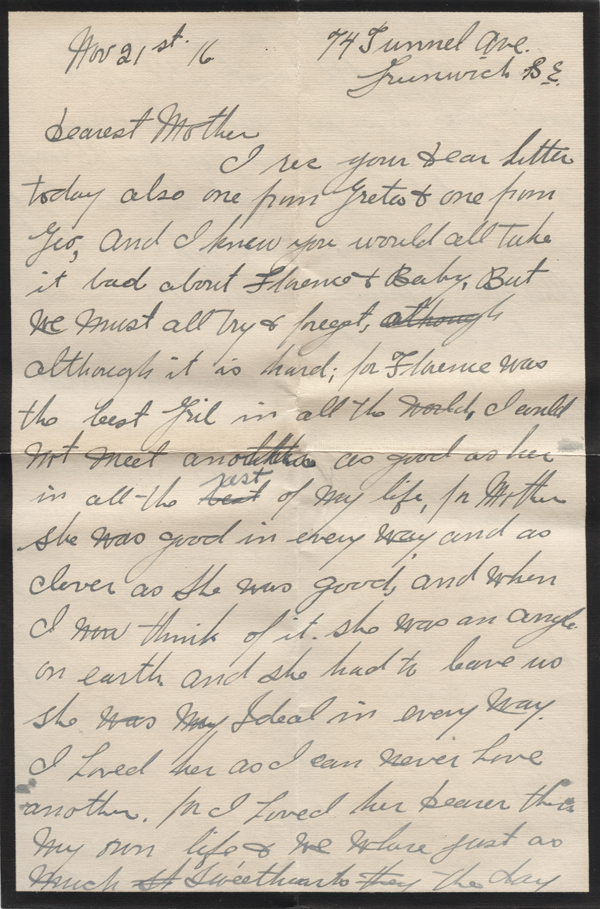 Nov 21st. 16
74 Tunnel Ave.
Grenwich S.E.
Dearest Mother
I rec your dear letter
today also one from Greta & one from
Geo, And I knew you would all take
it bad about Florence & Baby, But
We Must all try & forget, although
although it is hard; for Florence was
the best Gril in all the world, I could
Not Meet another as good as her
in all the best rest of My life, for Mother
she was good in every way and as
clever as she was good, and when
I now think of it. she was an angle
on earth and she had to leave us
she was My Ideal in every Way.
I Loved her as I can never Love
another. for I Loved her dearer than
My own life & We Whare just as
Much Sweethearts they the day